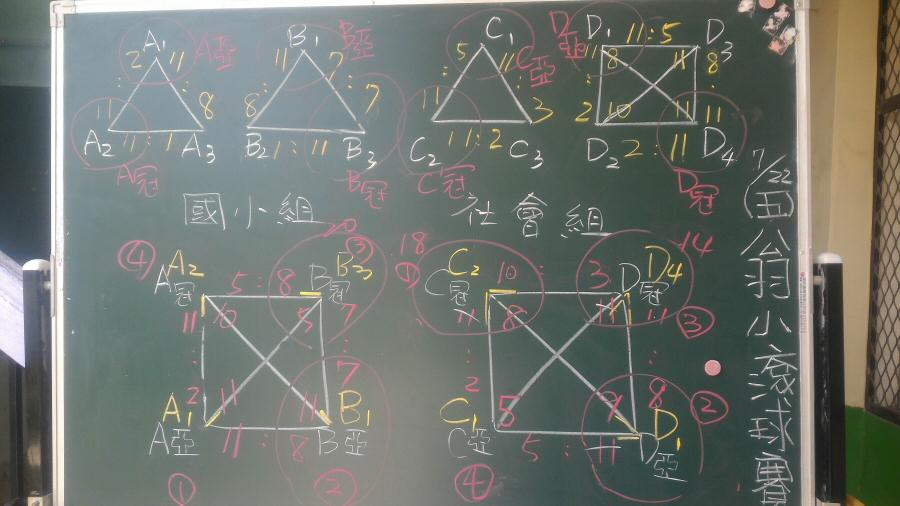 A1 A亞
2 : 11
11 : 8
A2 11 : 1 A3
A冠
B1 B亞
11 : 7
8 : 7
B2 1 : 11 B3
B冠
C1 C亞
5 : 11
11 : 3
C2 11 : 2 C3
C冠
D亞 D1 11 : 5 D3
11 8 11 8
2 10 11 11
D2 2 : 11 D4
D冠
7/22(五)翁小滾球賽
國小組
④ A2 A冠 5 : 8 B冠 B3 20 ③
11 10 5 7
: :
2 11 11 7
A1 A亞 11 : 8 B亞 B1
① ②
社會組
18 ① C2 C冠 10 : 3 D冠 D4 14 ③
11 8 11 11
: :
2 5 9 8 ②
C1 C亞 5 : 11 D亞 D1
④